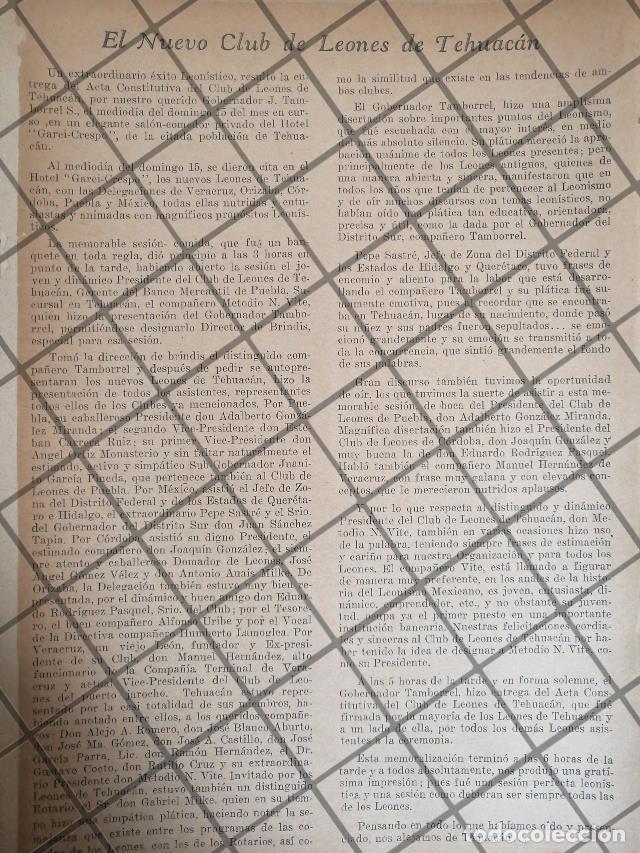 El Nuevo Club de Leones de Tehuacán
Un extraordinario éxito Leonístico, resultó la en-
trega del Acta Constitutiva del Club de Leones de
Tehuacán, por nuestro querido Gobernador J. Tam-
borrel S., a mediodía del domingo 15 del mes en cur-
so en un elegante salón-comedor privado del Hotel
"Garci-Crespo", de la citada población de Tehua-
cán.
Al mediodía del domingo 15, se dieron cita en el
Hotel "Garci-Crespo", los nuevos Leones de Tehua-
cán, con las Delegaciones de Veracruz, Orizaba, Cór-
doba, Puebla y México, todas ellas nutridas y entu-
siastas y animadas con magníficos propósitos Leonís-
ticos.
La memorable sesión-comida, que fué un ban-
quete en toda regla, dió principio a las 3 horas en
punto de la tarde, habiendo abierto la sesión el jo-
ven y dinámico Presidente del Club de Leones de Te-
huacán, Gerente del Banco Mercantil de Puebla, Su-
cursal en Tehuacán, el compañero Metodio N. Vite,
quien hizo la presentación del Gobernador Tambo-
rrel, permitiéndose designarlo Director de Brindis,
especial para esa sesión.
Tomó la dirección de brindis el distinguido com-
pañero Tamborrel y después de pedir se autopre-
sentaran los nuevos Leones de Tehuacán, hizo la
presentación de todos los asistentes, representantes
todos ellos de los Clubes ya mencionados. Por Pue-
bla, su caballeroso Presidente don Adalberto Gonzá-
lez Miranda; el segundo Vice-Presidente don Este-
ban Carrera Ruiz; su primer Vice-Presidente don
Angel Ortiz Monasterio y sin faltar naturalmente el
estimado, activo y simpático Sub-Gobernador Juani-
to García Prueda, que pertenece también al Club de
Leones de Puebla. Por México, asistió el Jefe de Zo-
na del Distrito Federal y de los Estados de Queréta-
ro e Hidalgo, el extraordinario Pepe Sastré y el Srio.
del Gobernador del Distrito Sur don Juan Sánchez
Tapia. Por Córdoba asistió su digno Presidente, el
estimado compañero don Joaquín González; el siem-
pre atento y caballeroso Domador de Leones, José
Angel Gómez Vélez y don Antonio Anais Milke. De
Orizaba, la Delegación también estuvo muy bien re-
presentada, por el dinámico y buen amigo don Eduar-
do Rodríguez Pasquel, Srio. del Club; por el Tesore-
ro, el buen compañero Alfonso Uribe y por el Vocal
de la Directiva compañero Humberto Lamoglea. Por
Veracruz, un viejo León, fundador y Ex-presi-
dente de su Club, don Manuel Hernández, alto
funcionario de la Compañía Terminal de Vera-
cruz y actual Vice-Presidente del Club de Leo-
nes del puerto jarocho. Tehuacán estuvo repre-
sentado por la casi totalidad de sus miembros, ha-
biendo anotado entre ellos, a los queridos compañe-
ros: Don Alejo A. Romero, don José Blanco Aburto,
don José Ma. Gómez, don José A. Castillo, don José
García Parra, Lic. don Ramón Hernández, el Dr.
Gustavo Coeto, don Basilio Cruz y su extraordina-
rio Presidente don Metodio N. Vite. Invitado por los
Leones de Tehuacán, estuvo también un distinguido
Rotario, el Sr. don Gabriel Mike, quien en su tiem-
po hizo una simpática plática, haciendo notar la se-
mejanza que existe entre los programas de las co-
midas de los Leones, con los de los Rotarios, así co-
mo la similitud que existe en las tendencias de am-
bos clubes.
El Gobernador Tamborrel, hizo una amplísima
disertación sobre importantes puntos del Leonismo,
que fué escuchada con el mayor interés, en medio
del más absoluto silencio. Su plática mereció la apro-
bación unánime de todos los Leones presentes; pero
principalmente de los Leones antiguos, quienes de
una manera abierta y sincera, manifestaron que en
todos los años que tenían de pertenecer al Leonismo
y de oír muchos discursos con temas leonísticos, no
habían oído una plática tan educativa, orientadora,
precisa y útil, como la dada por el Gobernador del
Distrito Sur, compañero Tamborrel.
Pepe Sastré, Jefe de Zona del Distrito Federal y
los Estados de Hidalgo y Querétaro, tuvo frases de
encomio y aliento para la labor que está desarro-
llando el compañero Tamborrel y su plática fué su-
mamente emotiva, pues al recordar que se encontra-
ba en Tehuacán, lugar de su nacimiento, donde pasó
su niñez y sus padres fueron sepultados... se emo-
cionó grandemente y su emoción se transmitió a to-
da la concurrencia, que sintió grandemente el fondo
de sus palabras.
Gran discurso también tuvimos la oportunidad
de oír, los que tuvimos la suerte de asistir a esta me-
morable sesión, de boca del Presidente del Club de
Leones de Puebla, don Adalberto González Miranda.
Magnífica disertación también hizo el Presidente del
Club de Leones de Córdoba, don Joaquín González y
muy buena la de don Eduardo Rodríguez Pasquel.
Habló también el compañero Manuel Hernández de
Veracruz con frase muy galana y con elevados con-
ceptos, que le merecieron nutridos aplausos.
Y por lo que respecta al distinguido y dinámico
Presidente del Club de Leones de Tehuacán, don Me-
todio N. Vite, también en varias ocasiones hizo uso
de la palabra, teniendo siempre frases de estimación
y cariño para nuestra Organización y para todos los
Leones. El compañero Vite, está llamado a figurar
de manera muy preferente, en los anales de la histo-
ria del Leonismo Mexicano, es joven, entusiasta, di-
námico, emprendedor, etc., y no obstante su juven-
tud, ocupa ya el primer puesto en una importante
institución bancaria. Nuestras felicitaciones cordia-
les y sinceras al Club de Leones de Tehuacán por ha-
ber tenido la idea de designar a Metodio N. Vite, co-
mo su Presidente.
A las 5 horas de la tarde y en forma solemne, el
Gobernador Tamborrel, hizo entrega del Acta Cons-
titutiva del Club de Leones de Tehuacán, que fué
firmada por la mayoría de los Leones de Tehuacán y
a un lado de ella, por todos los demás Leones asis-
tentes a la ceremonia.
Esta memorable sesión terminó a las 6 horas de la
tarde y a todos absolutamente, nos produjo una gratí-
sima impresión; pues fué una sesión perfecta leonís-
tica, y una sesión como debieran ser siempre todas las
de los Leones.
Pensando en todo lo que habíamos oído y presen-
ciado, nos alejamos de Tehuacán
todocoleccion